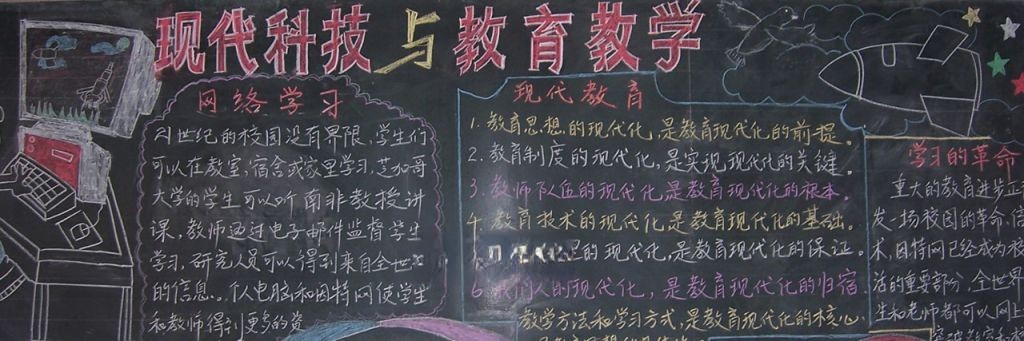 现代科技与教育教学
网络学习
21世纪的校园没有界限,学生们
可以在教室,宿舍或家里学习,芝加哥
大学的学生可以听南非教授讲
课,教师通过电子邮件监督学生
学习,研究人员可以得到来自全世
的信息。个人电脑和因特网使学生
和教师得到更多的资
现代教育
1.教育思想的现代化,是教育现代化的前提。
2.教育制度的现代化,是实现现代化的关键。
3.教师队伍的现代化,是教育现代化的根本.
4.教育技术的现代化是教育现代化的基础。
的现代化,是教育现代化的保证.
6.人的现代化,是教育现代化的归宿
教学方法和学习方式,是教育现代化的核心.
学习的革命
重大的教育进步正
发扬校园的革命,信
术,因特网已经成为校
活的重要部分.全世界
生和老师都可以网上